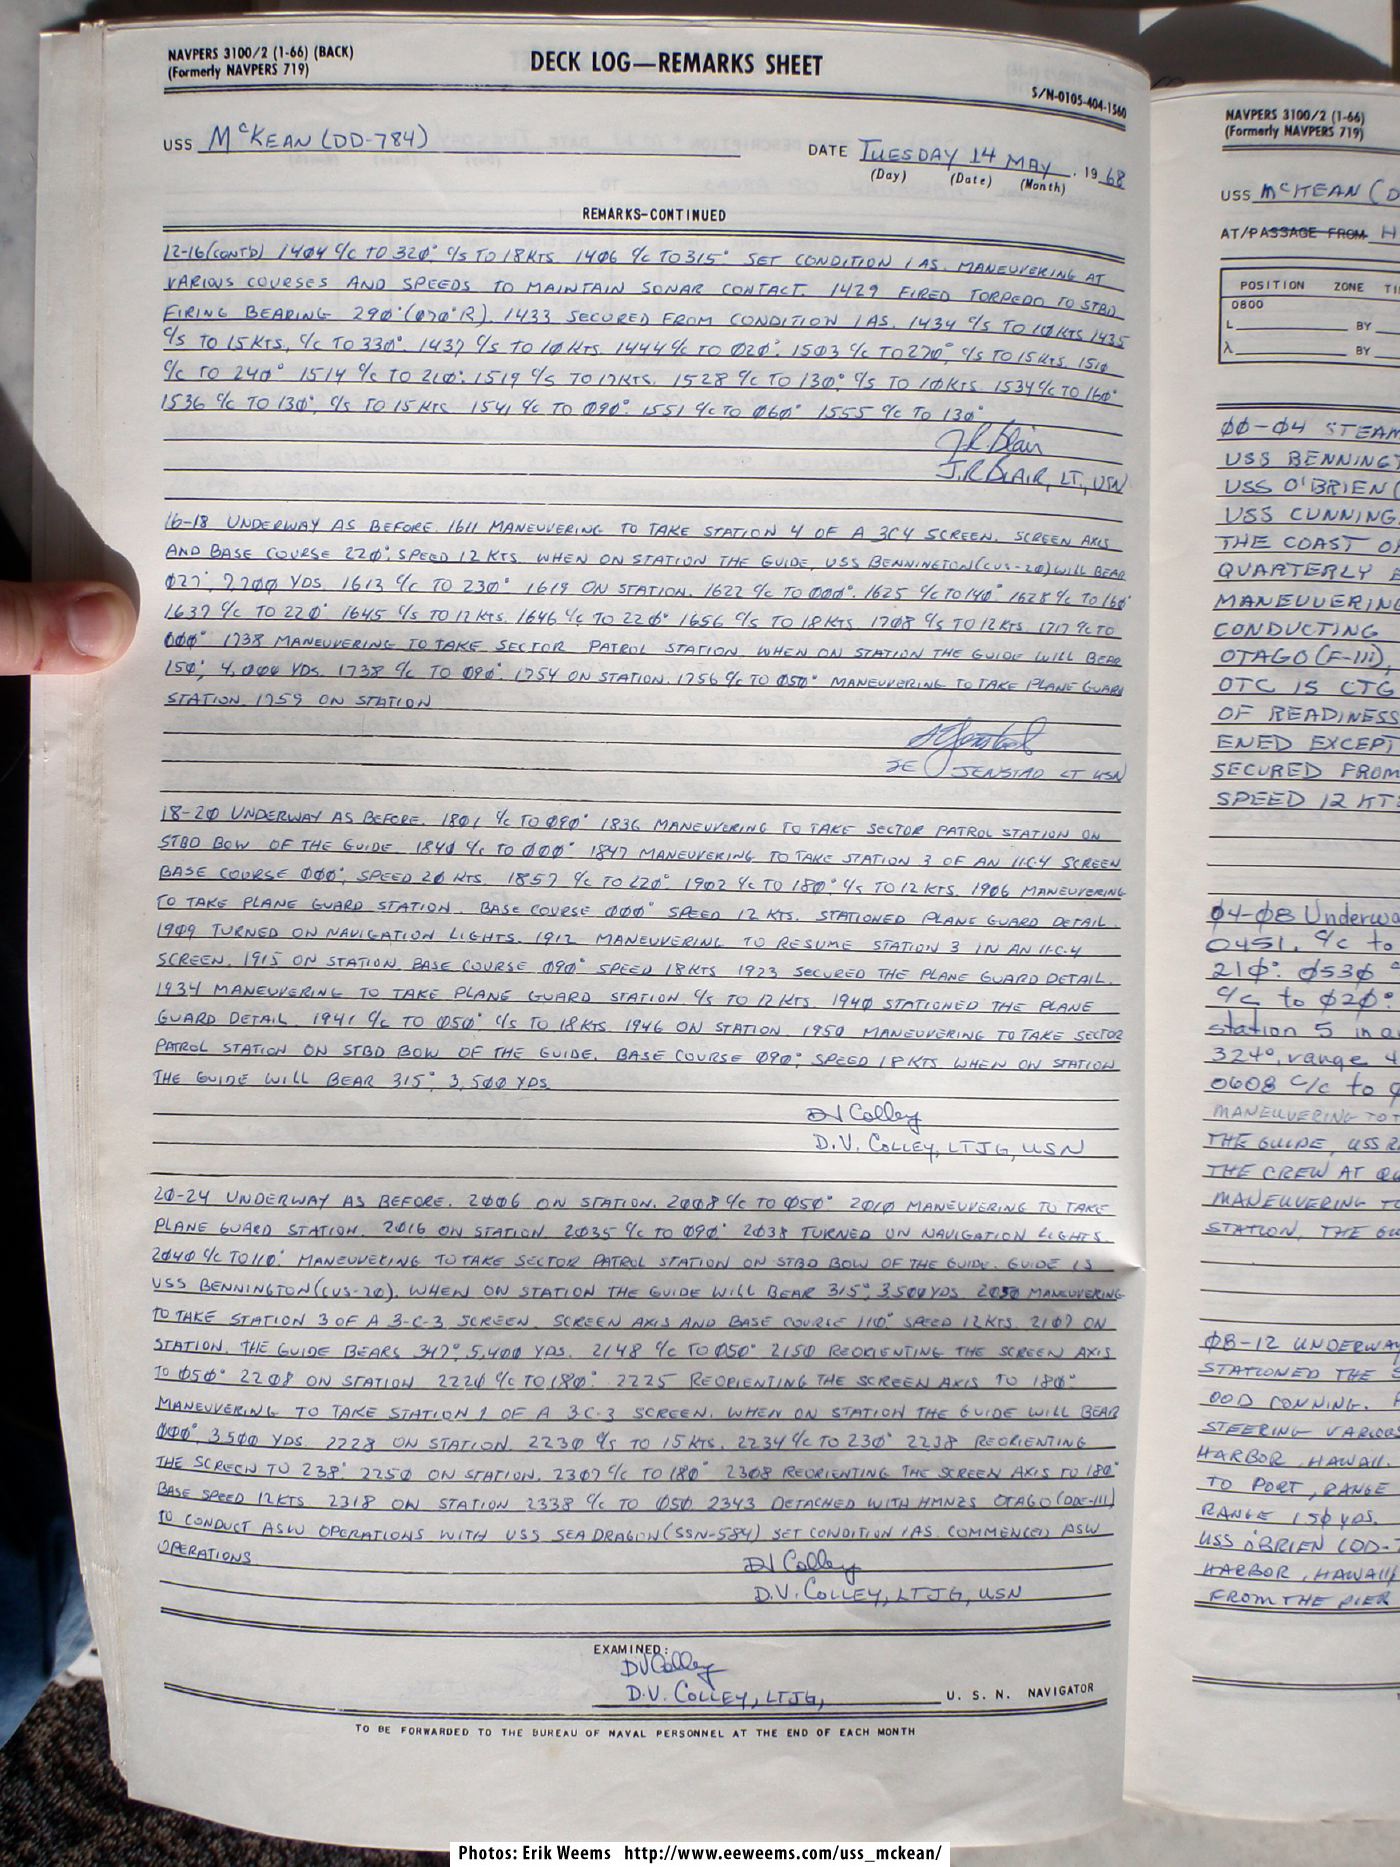 NAVPERS 3100/2 (1-66) (BACK)
(Formerly NAVPERS 719)
DECK LOG—REMARKS SHEET
S/N-0105-404-1560
USS McKEAN (DD-784)
DATE TUESDAY 14 MAY, 1968
(Day) (Date) (Month)
REMARKS-CONTINUED
12-16 (CONT'D) 14Ø4 C/C TO 32Ø° C/S TO 18 KTS 14Ø6 C/C TO 315° SET CONDITION 1 AS. MANEUVERING AT
VARIOUS COURSES AND SPEEDS TO MAINTAIN SONAR CONTACT. 1429 FIRED TORPEDO TO STBD
FIRING BEARING 29Ø° (Ø7Ø°R). 1433 SECURED FROM CONDITION 1 AS. 1434 C/S TO 1Ø KTS 1435
C/S TO 15 KTS, C/C TO 33Ø° 1437 C/S TO 1Ø KTS 1444 C/C TO Ø2Ø° 15Ø3 C/C TO 27Ø°, C/S TO 15 KTS. 151Ø
C/C TO 24Ø° 1514 C/C TO 21Ø° 1519 C/S TO 17 KTS. 1528 C/C TO 13Ø° C/S TO 1Ø KTS. 1534 C/C TO 16Ø°
1536 C/C TO 13Ø°, C/S TO 15 KTS 1541 C/C TO Ø9Ø° 1551 C/C TO Ø6Ø° 1555 C/C TO 13Ø°
J.R. Blair
J.R. BLAIR, LT, USN
16-18 UNDERWAY AS BEFORE. 1611 MANEUVERING TO TAKE STATION 4 OF A 3C4 SCREEN. SCREEN AXIS
AND BASE COURSE 22Ø°, SPEED 12 KTS. WHEN ON STATION THE GUIDE, USS BENNINGTON (CVS-2Ø) WILL BEAR
Ø27°, 7,7ØØ YDS. 1613 C/C TO 23Ø° 1619 ON STATION. 1622 C/C TO ØØØ°. 1625 C/C TO 14Ø° 1628 C/C TO 16Ø°
1637 C/C TO 22Ø° 1645 C/S TO 12 KTS. 1646 C/C TO 22Ø° 1656 C/S TO 18 KTS 17Ø8 C/S TO 12 KTS 1717 C/C TO
ØØØ° 1738 MANEUVERING TO TAKE SECTOR PATROL STATION. WHEN ON STATION THE GUIDE WILL BEAR
15Ø°, 4,ØØØ YDS. 1738 C/C TO Ø9Ø° 1754 ON STATION. 1756 C/C TO Ø5Ø° MANEUVERING TO TAKE PLANE GUARD
STATION. 1759 ON STATION
JE JENSTAD LT USN
18-2Ø UNDERWAY AS BEFORE. 18Ø1 C/C TO Ø9Ø° 1836 MANEUVERING TO TAKE SECTOR PATROL STATION ON
STBD BOW OF THE GUIDE 184Ø C/C TO ØØØ° 1847 MANEUVERING TO TAKE STATION 3 OF AN 11C4 SCREEN
BASE COURSE ØØØ°, SPEED 2Ø KTS. 1857 C/C TO 22Ø° 19Ø2 C/C TO 18Ø° C/S TO 12 KTS. 19Ø6 MANEUVERING
TO TAKE PLANE GUARD STATION. BASE COURSE ØØØ° SPEED 12 KTS. STATIONED PLANE GUARD DETAIL.
19Ø9 TURNED ON NAVIGATION LIGHTS. 1912 MANEUVERING TO RESUME STATION 3 IN AN 11-C-4
SCREEN. 1915 ON STATION BASE COURSE Ø9Ø° SPEED 18 KTS 1923 SECURED THE PLANE GUARD DETAIL.
1934 MANEUVERING TO TAKE PLANE GUARD STATION C/S TO 12 KTS. 194Ø STATIONED THE PLANE
GUARD DETAIL. 1941 C/C TO Ø5Ø° C/S TO 18 KTS 1946 ON STATION. 195Ø MANEUVERING TO TAKE SECTOR
PATROL STATION ON STBD BOW OF THE GUIDE. BASE COURSE Ø9Ø°, SPEED 18 KTS WHEN ON STATION
THE GUIDE WILL BEAR 315°, 3,5ØØ YDS.
DV Colley
D.V. COLLEY, LTJG, USN
2Ø-24 UNDERWAY AS BEFORE. 2ØØ6 ON STATION. 2ØØ8 C/C TO Ø5Ø° 2Ø1Ø MANEUVERING TO TAKE
PLANE GUARD STATION. 2Ø16 ON STATION 2Ø35 C/C TO Ø9Ø° 2Ø38 TURNED ON NAVIGATION LIGHTS
2Ø4Ø C/C TO 11Ø° MANEUVERING TO TAKE SECTOR PATROL STATION ON STBD BOW OF THE GUIDE. GUIDE IS
USS BENNINGTON (CVS-2Ø). WHEN ON STATION THE GUIDE WILL BEAR 315°, 3,5ØØ YDS 2Ø5Ø MANEUVERING
TO TAKE STATION 3 OF A 3-C-3 SCREEN. SCREEN AXIS AND BASE COURSE 11Ø° SPEED 12 KTS. 21Ø7 ON
STATION. THE GUIDE BEARS 347°, 5,4ØØ YDS. 2148 C/C TO Ø5Ø° 215Ø REORIENTING THE SCREEN AXIS
TO Ø5Ø° 22Ø8 ON STATION 222Ø C/C TO 18Ø° 2225 REORIENTING THE SCREEN AXIS TO 18Ø°
MANEUVERING TO TAKE STATION 1 OF A 3C-3 SCREEN. WHEN ON STATION THE GUIDE WILL BEAR
ØØØ°, 3,5ØØ YDS. 2228 ON STATION. 223Ø C/S TO 15 KTS. 2234 C/C TO 23Ø° 2238 REORIENTING
THE SCREEN TO 238° 225Ø ON STATION. 23Ø7 C/C TO 18Ø° 23Ø8 REORIENTING THE SCREEN AXIS TO 18Ø°
BASE SPEED 12 KTS 2318 ON STATION 2338 C/C TO Ø5Ø 2343 DETACHED WITH HMNZS OTAGO (DDE-111)
TO CONDUCT ASW OPERATIONS WITH USS SEADRAGON (SSN-584) SET CONDITION 1AS. COMMENCED ASW
OPERATIONS
DV Colley
D.V. COLLEY, LTJG, USN
EXAMINED:
DV Colley
D.V. COLLEY, LTJG, U. S. N. NAVIGATOR
TO BE FORWARDED TO THE BUREAU OF NAVAL PERSONNEL AT THE END OF EACH MONTH
NAVPERS 3100/2 (1-66)
(Formerly NAVPERS 719)
USS McKEAN (D
AT/PASSAGE FROM H
POSITION ZONE TI
0800
L BY
λ BY
ØØ-Ø4 STEAM
USS BENNINGT
USS O'BRIEN (
USS CUNNING
THE COAST O
QUARTERLY E
MANEUVERING
CONDUCTING
OTAGO (F-111),
OTC IS CTG
OF READINESS
ENED EXCEPT
SECURED FROM
SPEED 12 KT
Ø4-Ø8 Underwa
0451. C/C to
21Ø° Ø53Ø
C/C to Ø2Ø°
station 5 in a
324°, range 4
0608 C/C to
MANEUVERING TO T
THE GUIDE, USS
THE CREW AT
MANEUVERING T
STATION, THE GU
Ø8-12 UNDERWAY
STATIONED THE S
OOD CONNING.
STEERING VARIOUS
HARBOR, HAWAII.
TO PORT, RANGE
RANGE 15Ø YDS.
USS O'BRIEN (DD-7
HARBOR, HAWAII
FROM THE PIER
Photos: Erik Weems http://www.eeweems.com/uss_mckean/